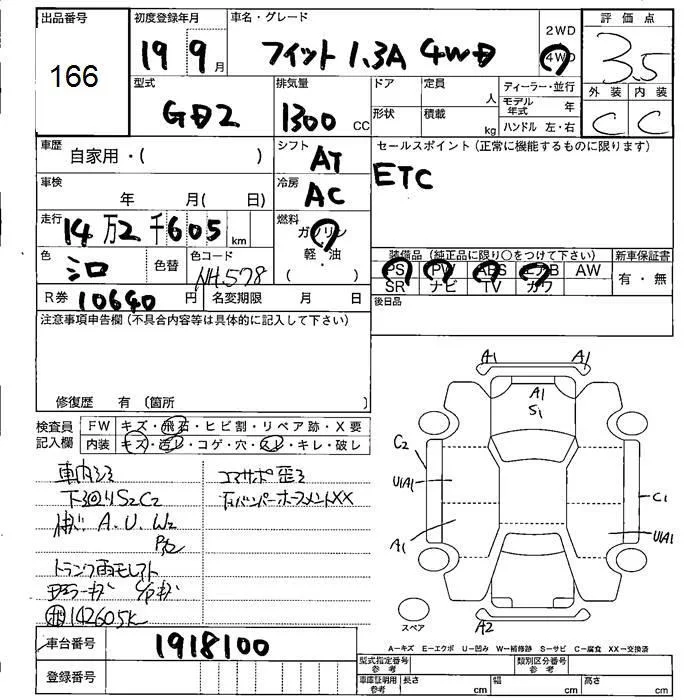 出品番号
166
初度登録年月
19 9月
車名・グレード
フィット 1.3A 4WD
2WD
4WD
評価点
3.5
外装 内装
C C
型式
GD2
排気量
1300 CC
ドア
形状
定員 人
積載 kg
ディーラー・並行
モデル年式 年
ハンドル 左・右
車歴
自家用・( )
シフト
AT
セールスポイント(正常に機能するものに限ります)
ETC
車検
年 月( 日)
冷房
AC
走行
14万2千605 km
燃料
ガソリン
軽・油
( )
色
シロ
色替
色コード
NH.578
装備品(純正品に限り○をつけて下さい)
PS PW ABS エアB AW
SR ナビ TV カワ
新車保証書
有・無
R券 10640 円
名変期限 月 日
後日品
注意事項申告欄(不具合内容等は具体的に記入して下さい)
修復歴 有(箇所
検査員記入欄
FW キズ・飛石・ヒビ割・リペア跡・X要
内装 キズ・汚レ・コゲ・穴・スレ・キレ・破レ
車内シミ
下廻りS2C2
A.U.W2
P2
トランク雨モレアト
142605K
コアサポ歪ミ
バンパーホースメントXX
A1 A1
A1
S1
C2
U1A1
A1
C1
U1A1
A2
スペア
A-キズ E-エクボ U-凹み W-補修跡 S-サビ C-腐食 XX-交換済
車台番号
1918100
登録番号
型式指定番号 参考
類別区分番号 参考
車庫証明用 参考
長さ cm
幅 cm
高さ cm